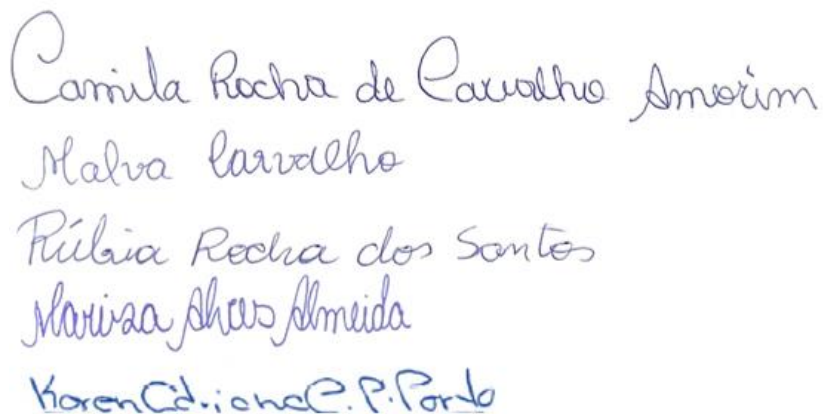 Camila Rocha de Carvalho Amorim
Malva Carvalho
Rúbia Rocha dos Santos
Mariza Alves Almeida
Karen C. P. Porto